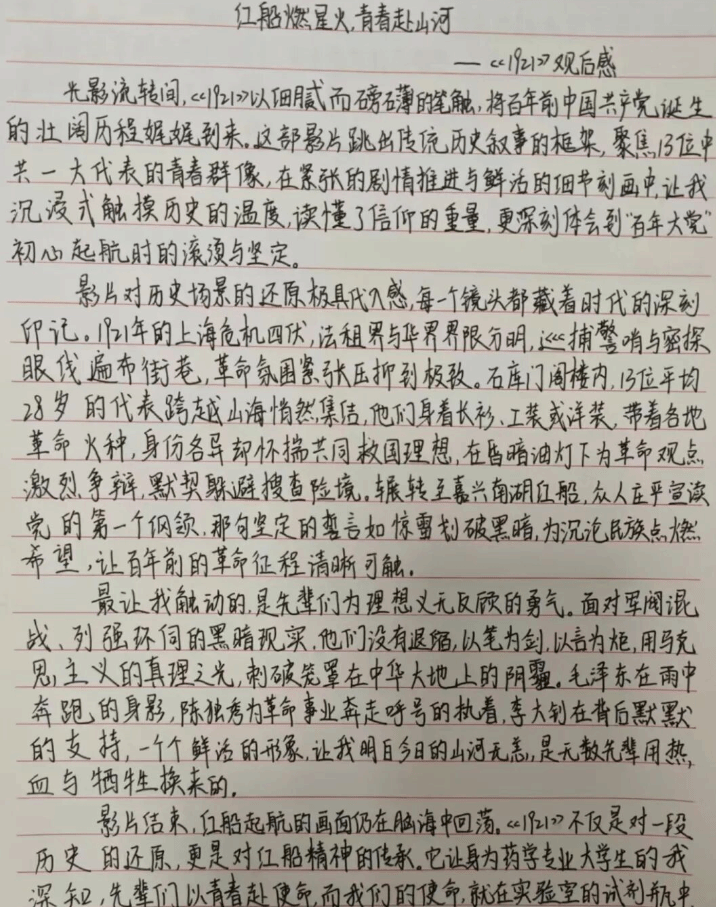 红船燃星火,青春赴山河
——《1921》观后感
光影流转间,《1921》以细腻而磅礴的笔触,将百年前中国共产党诞生
的壮阔历程娓娓到来。这部影片跳出传统历史叙事的框架,聚焦13位中
共一大代表的青春群像,在紧张的剧情推进与鲜活的细节刻画中,让我
沉浸式触摸历史的温度,读懂了信仰的重量,更深刻体会到"百年大党"
初心起航时的滚烫与坚定。
影片对历史场景的还原极具代入感,每一个镜头都藏着时代的深刻
印记。1921年的上海危机四伏,法租界与华界界限分明,巡捕警哨与密探
眼线遍布街巷,革命氛围紧张压抑到极致。石库门阁楼内,13位平均
28岁的代表跨越山海悄然集结,他们身着长衫、工装或洋装,带着各地
革命火种,身份各异却怀揣共同救国理想,在昏暗油灯下为革命观点
激烈争辩,默契躲避搜查险境。辗转至嘉兴南湖红船,众人庄严宣读
党的第一个纲领,那句坚定的誓言如惊雷划破黑暗,为沉沦民族点燃
希望,让百年前的革命征程清晰可触。
最让我触动的,是先辈们为理想义无反顾的勇气。面对军阀混
战、列强环伺的黑暗现实,他们没有退缩,以笔为剑,以言为炬,用马克
思主义的真理之光,刺破笼罩在中华大地上的阴霾。毛泽东在雨中
奔跑的身影,陈独秀为革命事业奔走呼号的执着,李大钊在背后默默
的支持,一个个鲜活的形象,让我明白今日的山河无恙,是无数先辈用热
血与牺牲换来的。
影片结束,红船起航的画面仍在脑海中回荡。《1921》不仅是对一段
历史的还原,更是对红船精神的传承。它让身为药学专业大学生的我
深知,先辈们以青春赴使命,而我们的使命,就在实验室的试剂瓶中